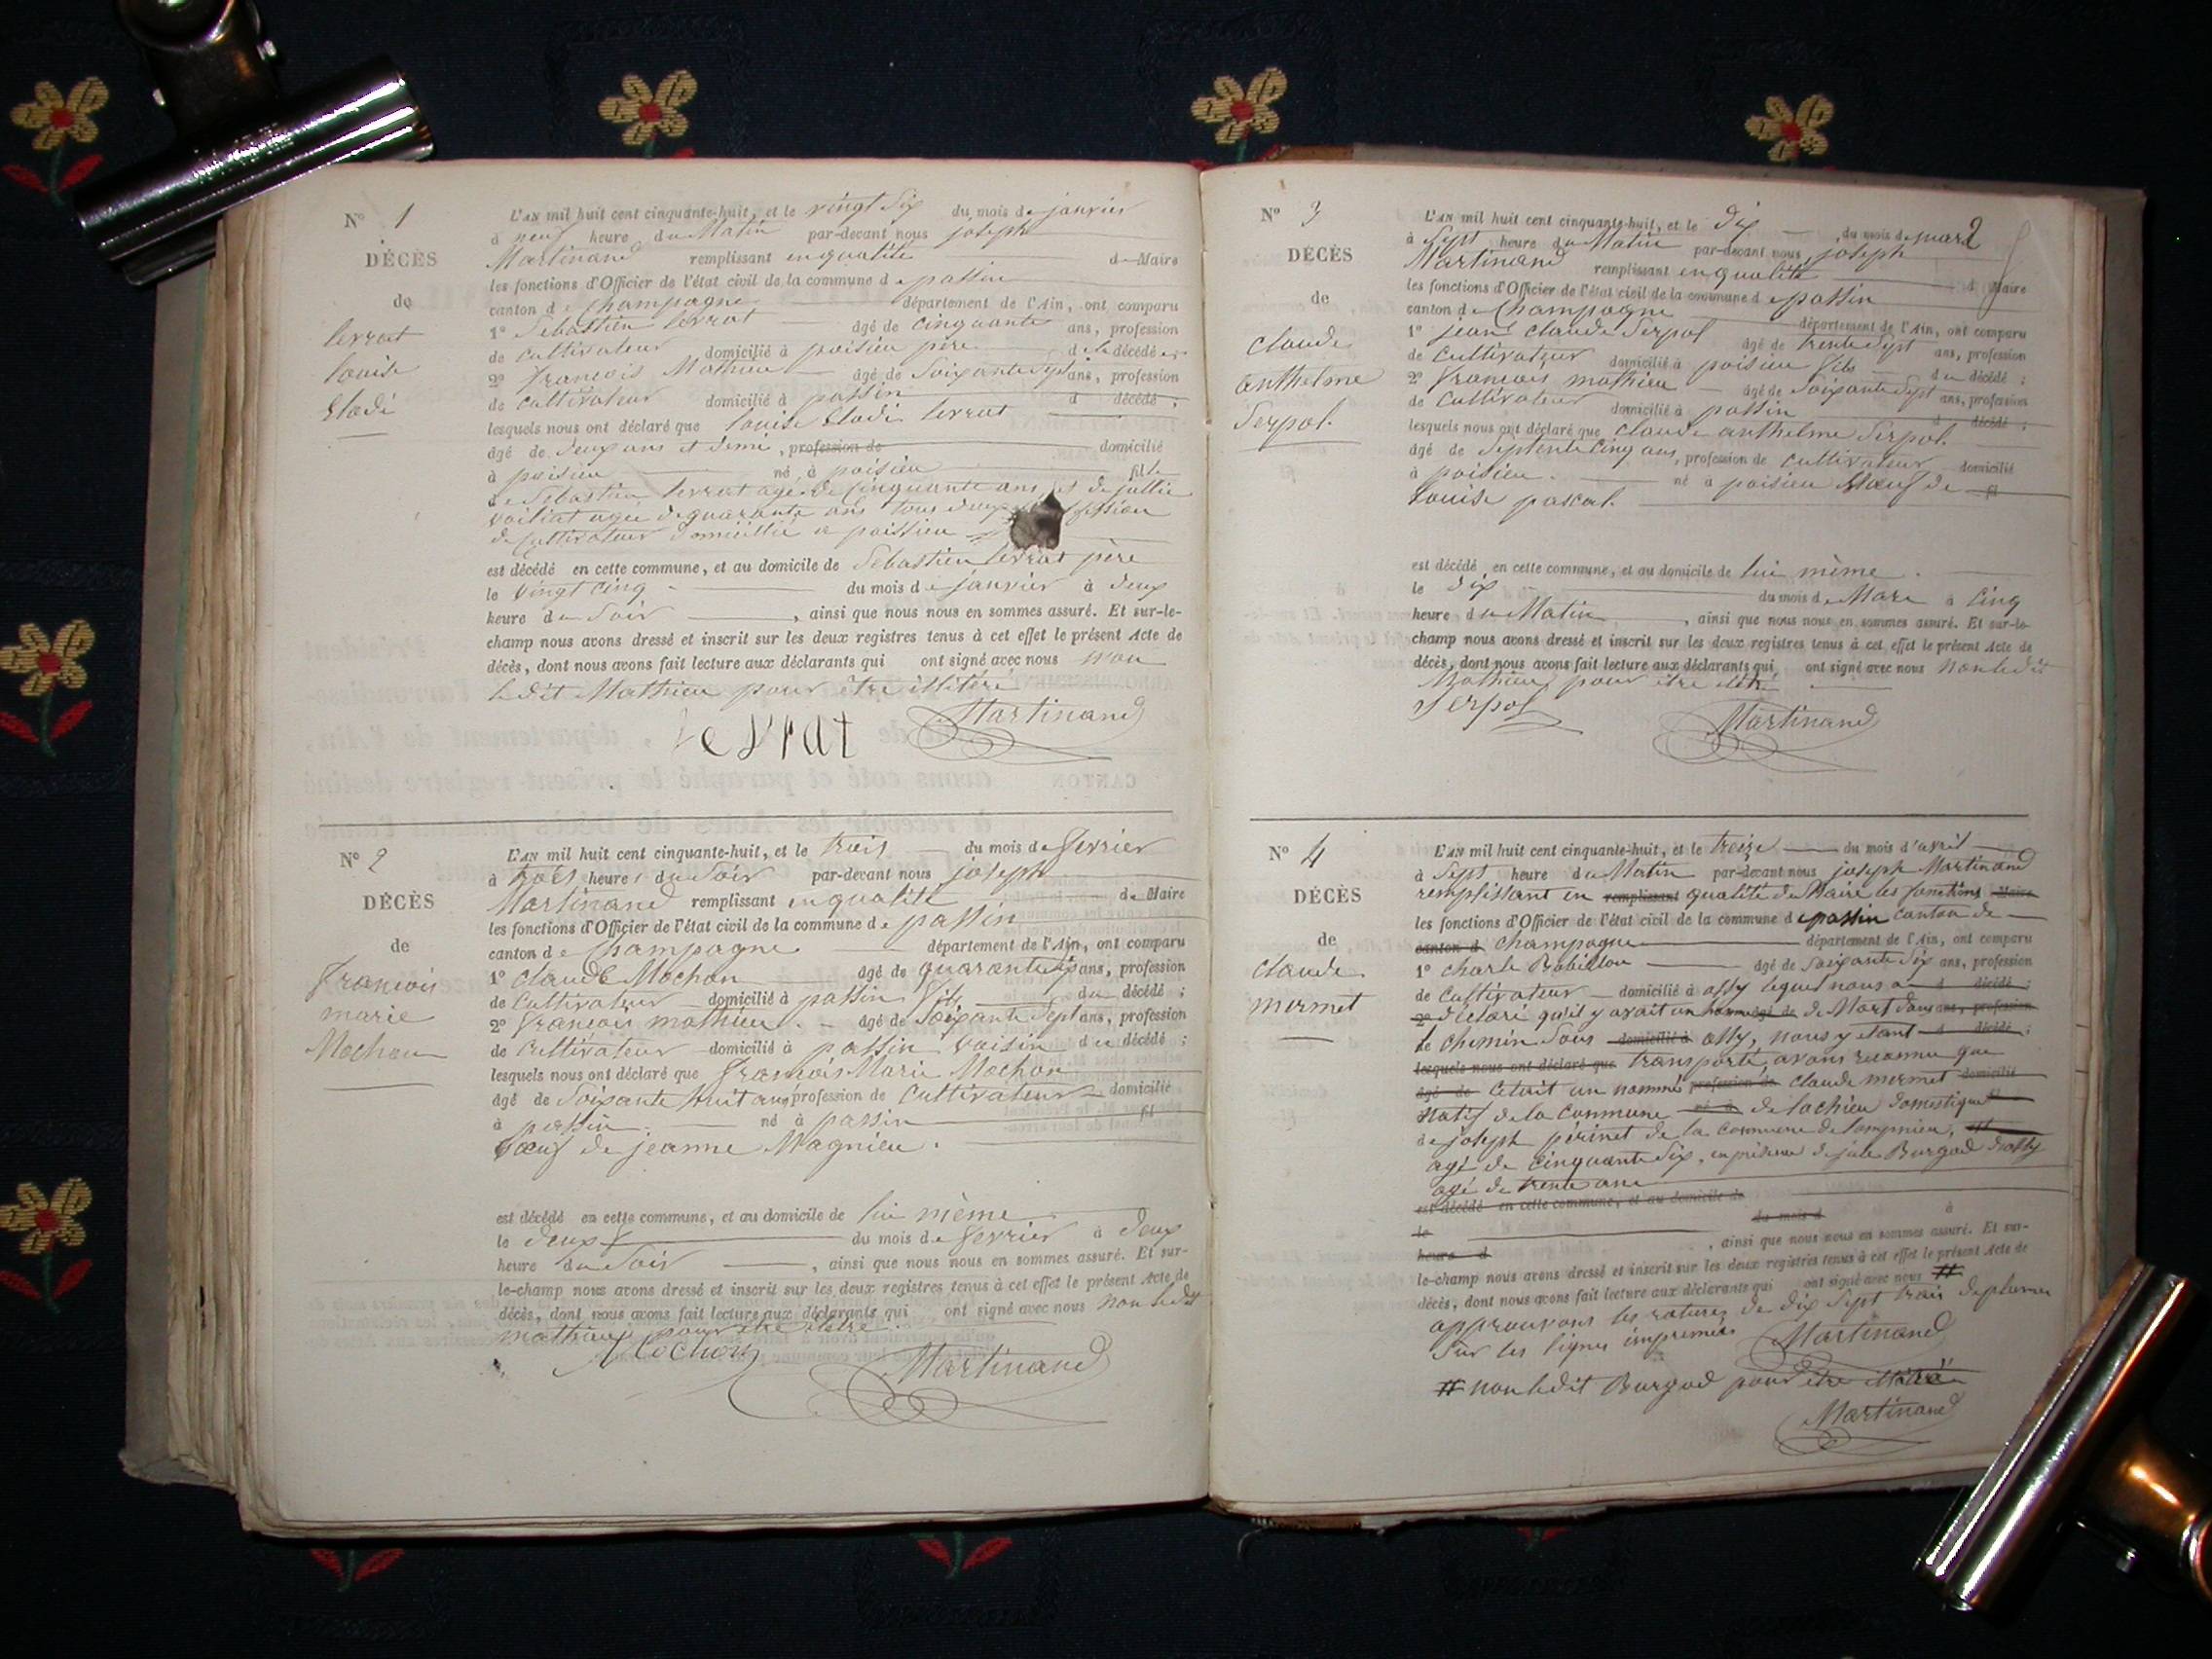 N° 1
DÉCÈS
de
levrat
louise
Elodi
L'AN mil huit cent cinquante-huit, et le vingt Six du mois de janvier
à neuf heure du Matin par-devant nous joseph
Martinand remplissant en qualité de Maire
les fonctions d'Officier de l'état civil de la commune de passin
canton de Champagne département de l'Ain, ont comparu
1° Sebastien levrat âgé de cinquante ans, profession
de cultivateur domicilié à poisieu père de la décédée
2° francois Mathieu âgé de Soixante Sept ans, profession
de cultivateur domicilié à passin d décédé ;
lesquels nous ont déclaré que louise Elodi levrat
âgé de deux ans et demi, profession de domicilié
à poisieu né à poisieu fille
de Sebastien levrat agé de cinquante ans et de jullie
voilliat agée de quarante ans tous deux
de cultivateur domicillié a poissieu
est décédé en cette commune, et au domicile de Sebastien levrat père
le vingt cinq du mois de janvier à deux
heure du Soir , ainsi que nous nous en sommes assuré. Et sur-le-
champ nous avons dressé et inscrit sur les deux registres tenus à cet effet le présent Acte de
décès, dont nous avons fait lecture aux déclarants qui ont signé avec nous non
ledit Mathieu pour être illitéré
levrat Martinand
N° 2
DÉCÈS
de
francois
marie
Mochon
L'AN mil huit cent cinquante-huit, et le trois du mois de fevrier
à trois heures du Soir par-devant nous joseph
Martinand remplissant en qualité de Maire
les fonctions d'Officier de l'état civil de la commune de passin
canton de Champagne département de l'Ain, ont comparu
1° claude Mochon âgé de quarante six ans, profession
de cultivateur domicilié à passin fils du décédé ;
2° francois mathieu âgé de Soixante Sept ans, profession
de cultivateur domicilié à passin voisin du décédé ;
lesquels nous ont déclaré que francois Marie Mochon
âgé de Soixante huit ans profession de cultivateur domicilié
à passin né à passin fil
veuf de jeanne Magnieu.
est décédé en cette commune, et au domicile de lui même
le deux du mois de fevrier à deux
heure du Soir , ainsi que nous nous en sommes assuré. Et sur-
le-champ nous avons dressé et inscrit sur les deux registres tenus à cet effet le présent Acte de
décès, dont nous avons fait lecture aux déclarants qui ont signé avec nous non ledit
mathieu pour être
Mochon Martinand
N° 3
DÉCÈS
de
claude
anthelme
Serpol.
2
L'AN mil huit cent cinquante-huit, et le dix , du mois de mars
à Sept heure du Matin par-devant nous joseph
Martinand remplissant en qualité d Maire
les fonctions d'Officier de l'état civil de la commune d e passin
canton de Champagne département de l'Ain, ont comparu
1° jean claude Serpol âgé de trente Sept ans, profession
de cultivateur domicilié à poisieu fils du décédé ;
2° francois mathieu âgé de Soixante Sept ans, profession
de cultivateur domicilié à passin d décédé ;
lesquels nous ont déclaré que claude anthelme Serpol.
âgé de Septente Cinq ans, profession de cultivateur domicilié
à poisieu. né à poisieu Veuf de fil
louise pascal.
est décédé en cette commune, et au domicile de lui même.
le dix du mois de Mars à Cinq
heure du Matin , ainsi que nous nous en sommes assuré. Et sur-le-
champ nous avons dressé et inscrit sur les deux registres tenus à cet effet le présent Acte de
décès, dont nous avons fait lecture aux déclarants qui ont signé avec nous non ledit
Mathieu pour être
Serpol Martinand
N° 4
DÉCÈS
de
claude
mermet
L'AN mil huit cent cinquante-huit, et le treize du mois d'avril
à Sept heure du Matin par-devant nous joseph Martinand
remplissant en remplissant qualité de Maire les fonctions Maire
les fonctions d'Officier de l'état civil de la commune d e passin canton de
canton d champagne département de l'Ain, ont comparu
1° charle Robillou âgé de Soixante Six ans, profession
de cultivateur domicilié à ossy lequel nous a d décédé ;
2° déclaré qu'il y avait un homme âgé de de Mort dans ans, profession
le chemin Sous domicilié à ossy, nous y étant d décédé ;
lesquels nous ont déclaré que transporté, avons reconnu que
âgé de cétait un nommé profession de claude mermet domicilié
natif de la commune né à de lochieu domestique
de joseph périnet de la commune de lompnieu, est
agé de cinquante Six, en présence de jule Burgod d'ossy
agé de trente ans
est décédé en cette commune, et au domicile de
le du mois d à
heure d , ainsi que nous nous en sommes assuré. Et sur-
le-champ nous avons dressé et inscrit sur les deux registres tenus à cet effet le présent Acte de
décès, dont nous avons fait lecture aux déclarants qui ont signé avec nous #
approuvons les ratures de dix Sept trais de plume
Sur les lignes imprimés Martinand
# non ledit Burgod pour être
Martinand